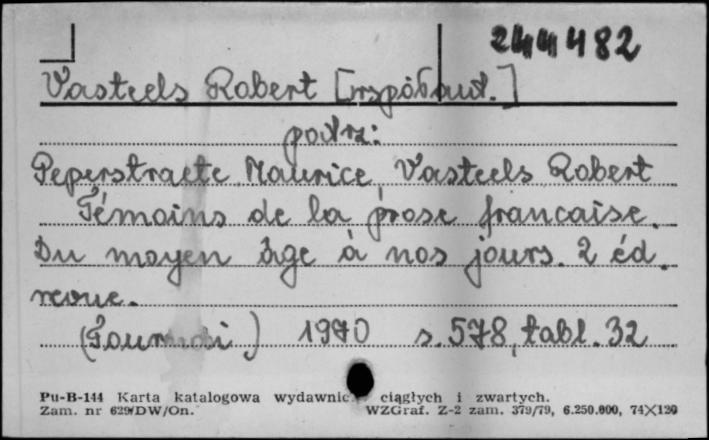 244482
Vasteels Robert [współaut.]
patrz:
Peperstraete Maurice, Vasteels Robert
Témoins de la prose francaise.
Du moyen âge à nos jours. 2 éd.
revue.
(Tournai) 1970 s. 578, tabl. 32
Pu-B-144 Karta katalogowa wydawnic. ciągłych i zwartych.
Zam. nr 629/DW/On. WZGraf. Z-2 zam. 379/79, 6.250.000, 74X120